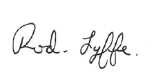 Rod. Lyffe.